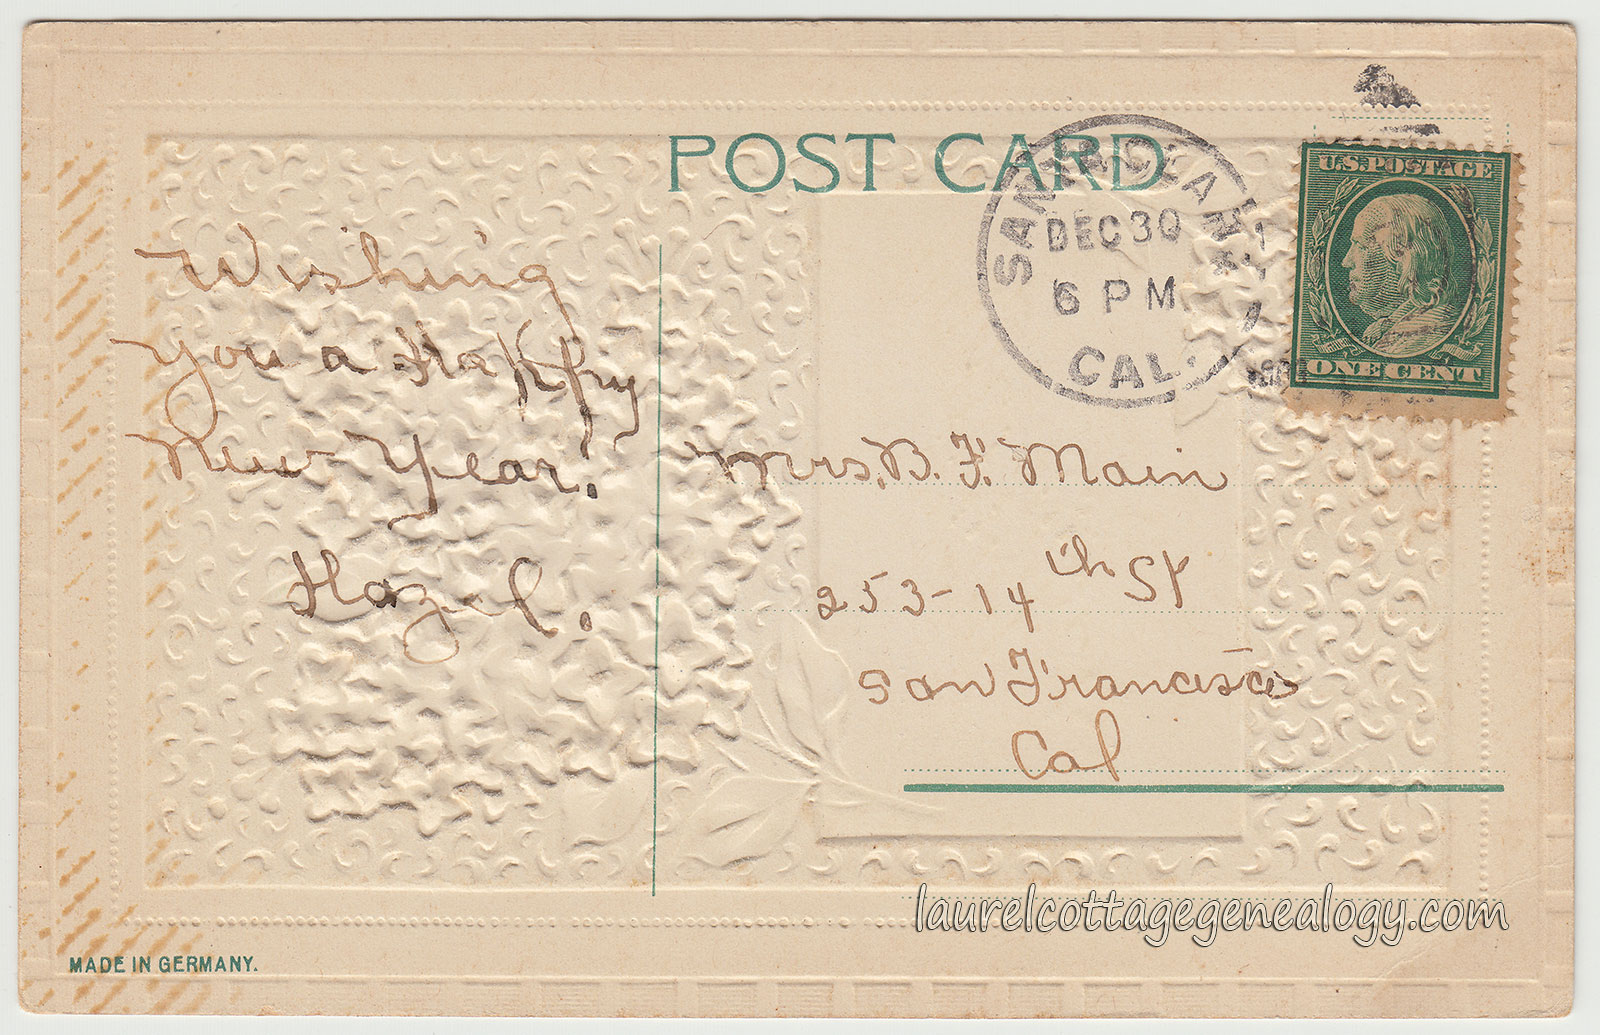 POST CARD
SANTA CLARA
DEC 30
6 PM
CAL.
U.S. POSTAGE
ONE CENT
Wishing
you a Happy
New Year!
Hazel.
Mrs. B. F. Main
253-14th St
San Francisco
Cal
laurelcottagegenealogy.com
MADE IN GERMANY.